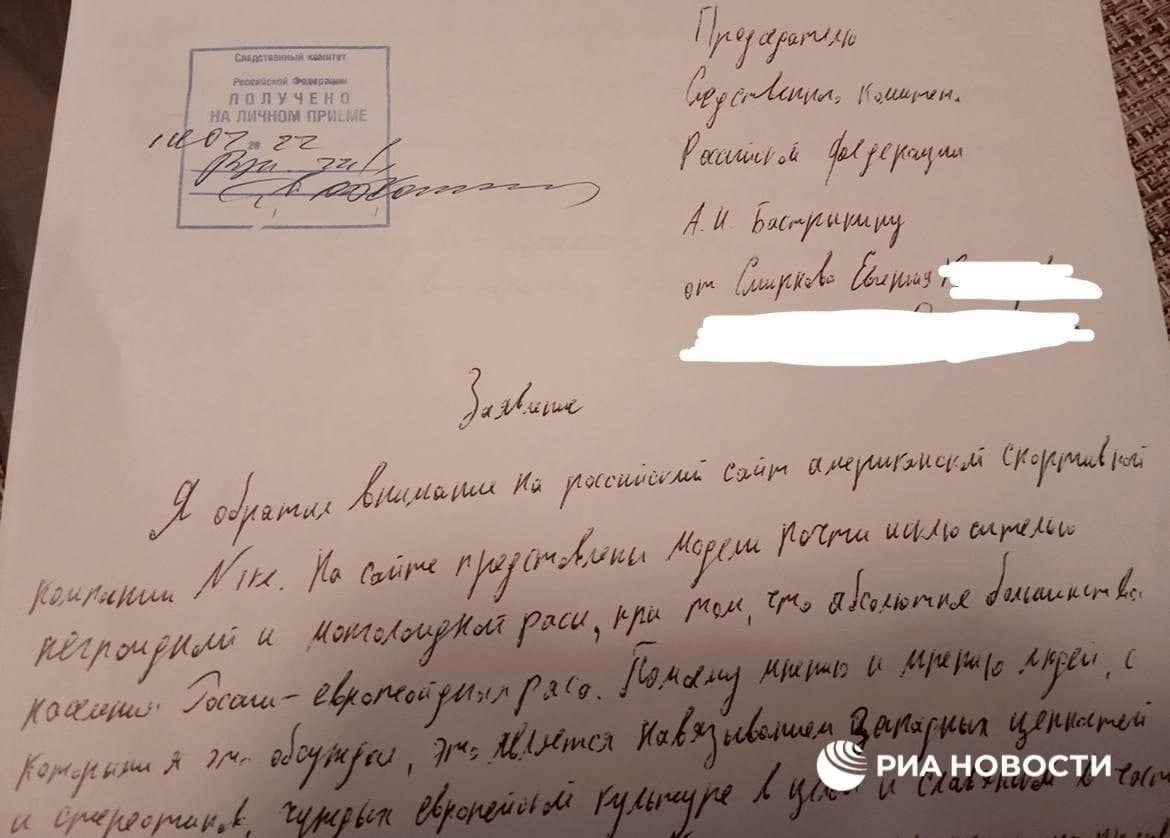 Следственный комитет
Российской Федерации
ПОЛУЧЕНО
НА ЛИЧНОМ ПРИЕМЕ
20 22
Председателю
Следственного комитета
Российской Федерации
А.И. Бастрыкину
от Смирнова Евгения
Заявление
Я обратил внимание на российский сайт американской спортивной
компании Nike. На сайте представлены модели почти исключительно
негроидной и монголоидной расы, при том, что абсолютное большинство
население России - европеойдная раса. Помоему мнению и мнению людей, с
которыми я это обсуждал, это является навязыванием западных ценностей
и стереотипов, чуждых европейской культуре в целом и славянской в
РИА НОВОСТИ